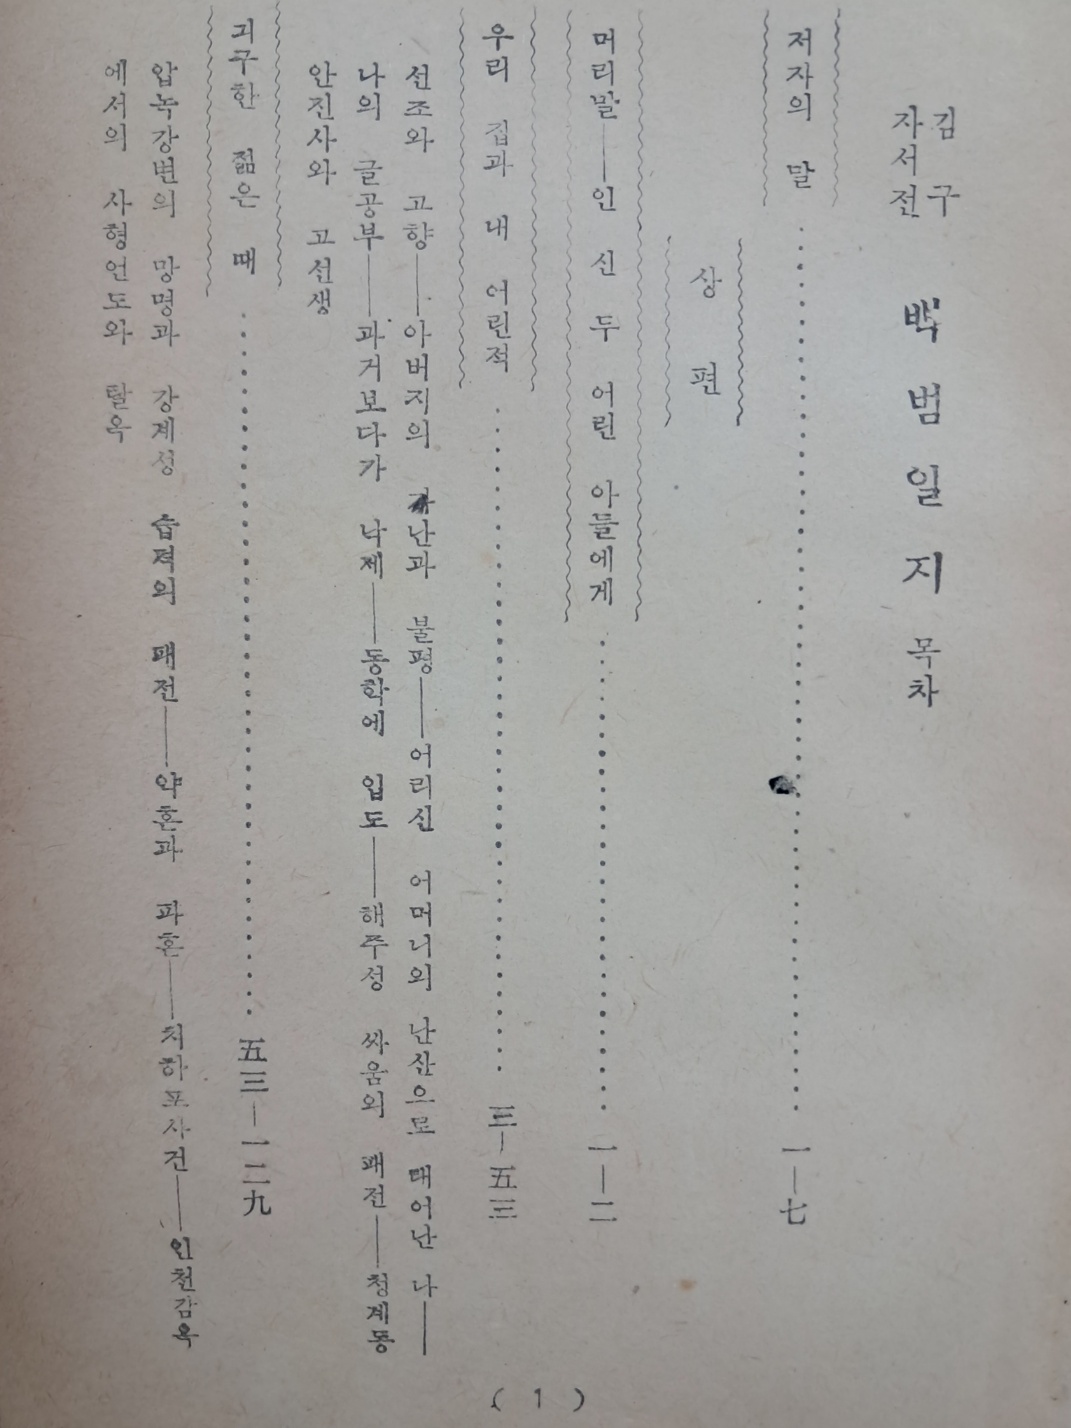 김구
자서전
백범일지 목차
저자의 말 ‥‥‥‥‥‥‥‥‥‥‥‥‥‥‥‥ 一—七
상편
머리말——인 신 두 어린 아들에게 ‥‥‥‥‥‥‥‥ 一—二
우리 집과 내 어린적 ‥‥‥‥‥‥‥‥‥‥‥‥ 三—五三
선조와 고향——아버지의 가난과 불평——어리신 어머니의 난산으로 태어난 나——
나의 글공부——과거보다가 낙제——동학에 입도——해주성 싸움의 패전——청계동
안진사와 고선생
긔구한 젊은 때 ‥‥‥‥‥‥‥‥‥‥‥‥‥‥ 五三—一二九
압녹강변의 망명과 강계성 습격의 패전——약혼과 파혼——치하포사건——인천감옥
에서의 사형언도와 탈옥
( 1 )